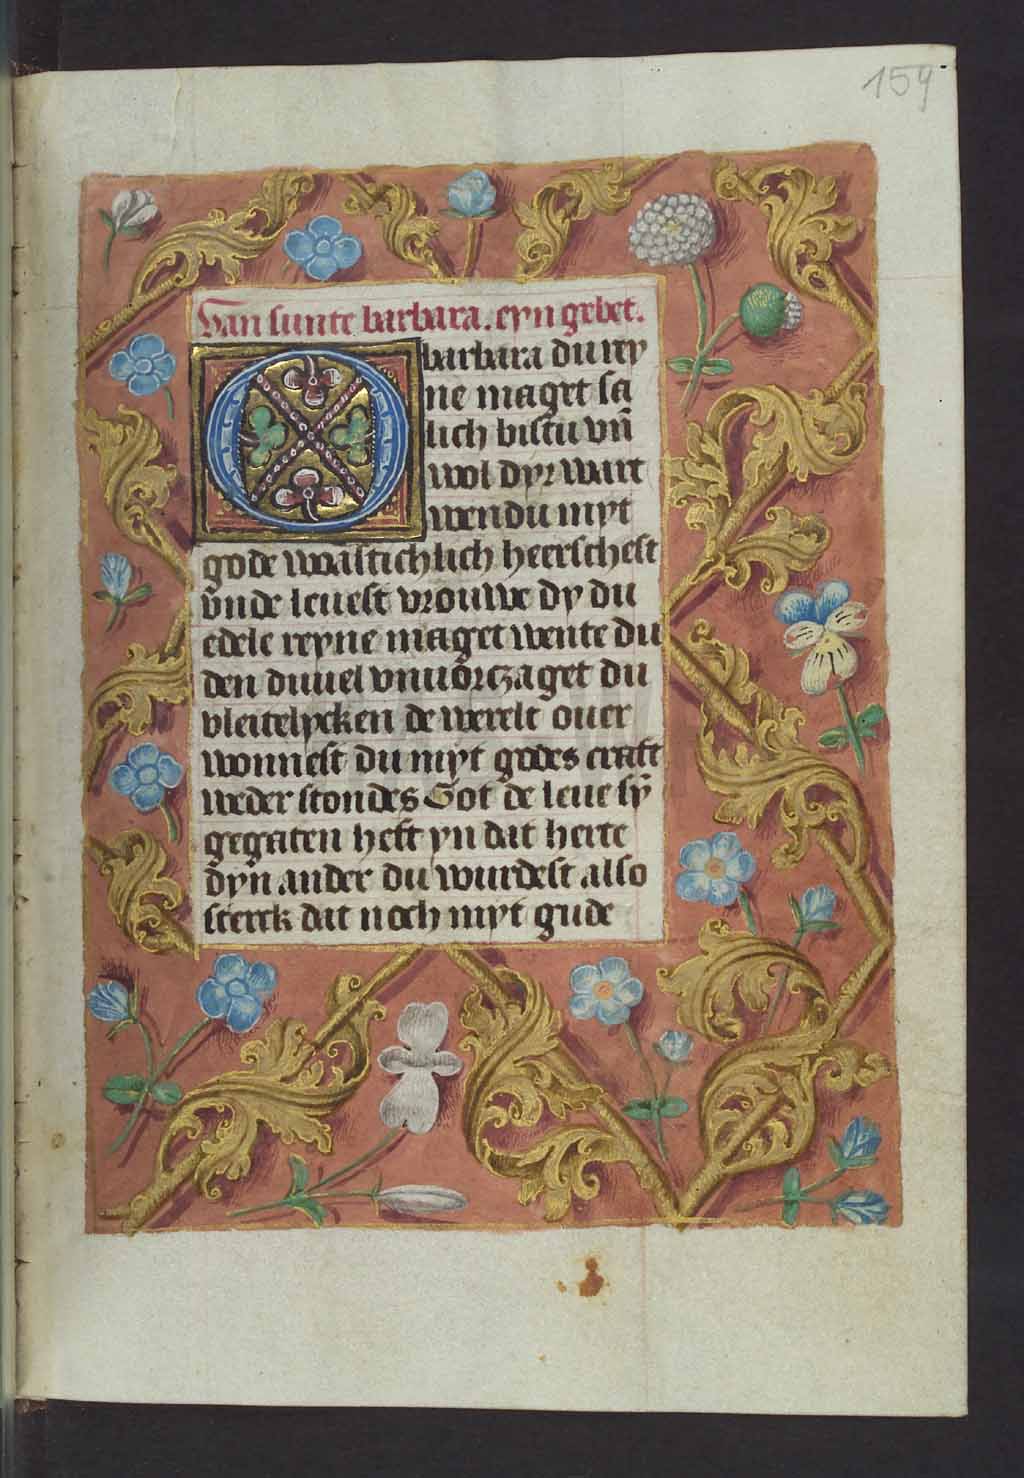 159
Van sunte barbara. eyn gebet.
O barbara du rey
ne maget sa
lich bistu vn̄
wol dyr wart
wen du myt
gode wastichlich heerschest
vnde leuest vrouwe dy du
edele reyne maget wente du
den duuel vnuorczaget du
vleitelycken de werelt ouer
wonnest du myt godes craft
weder stondes Got de leue sȳ
gegaten heft yn dat herte
dyn ander du wurdest also
sterck dat noch myt gude